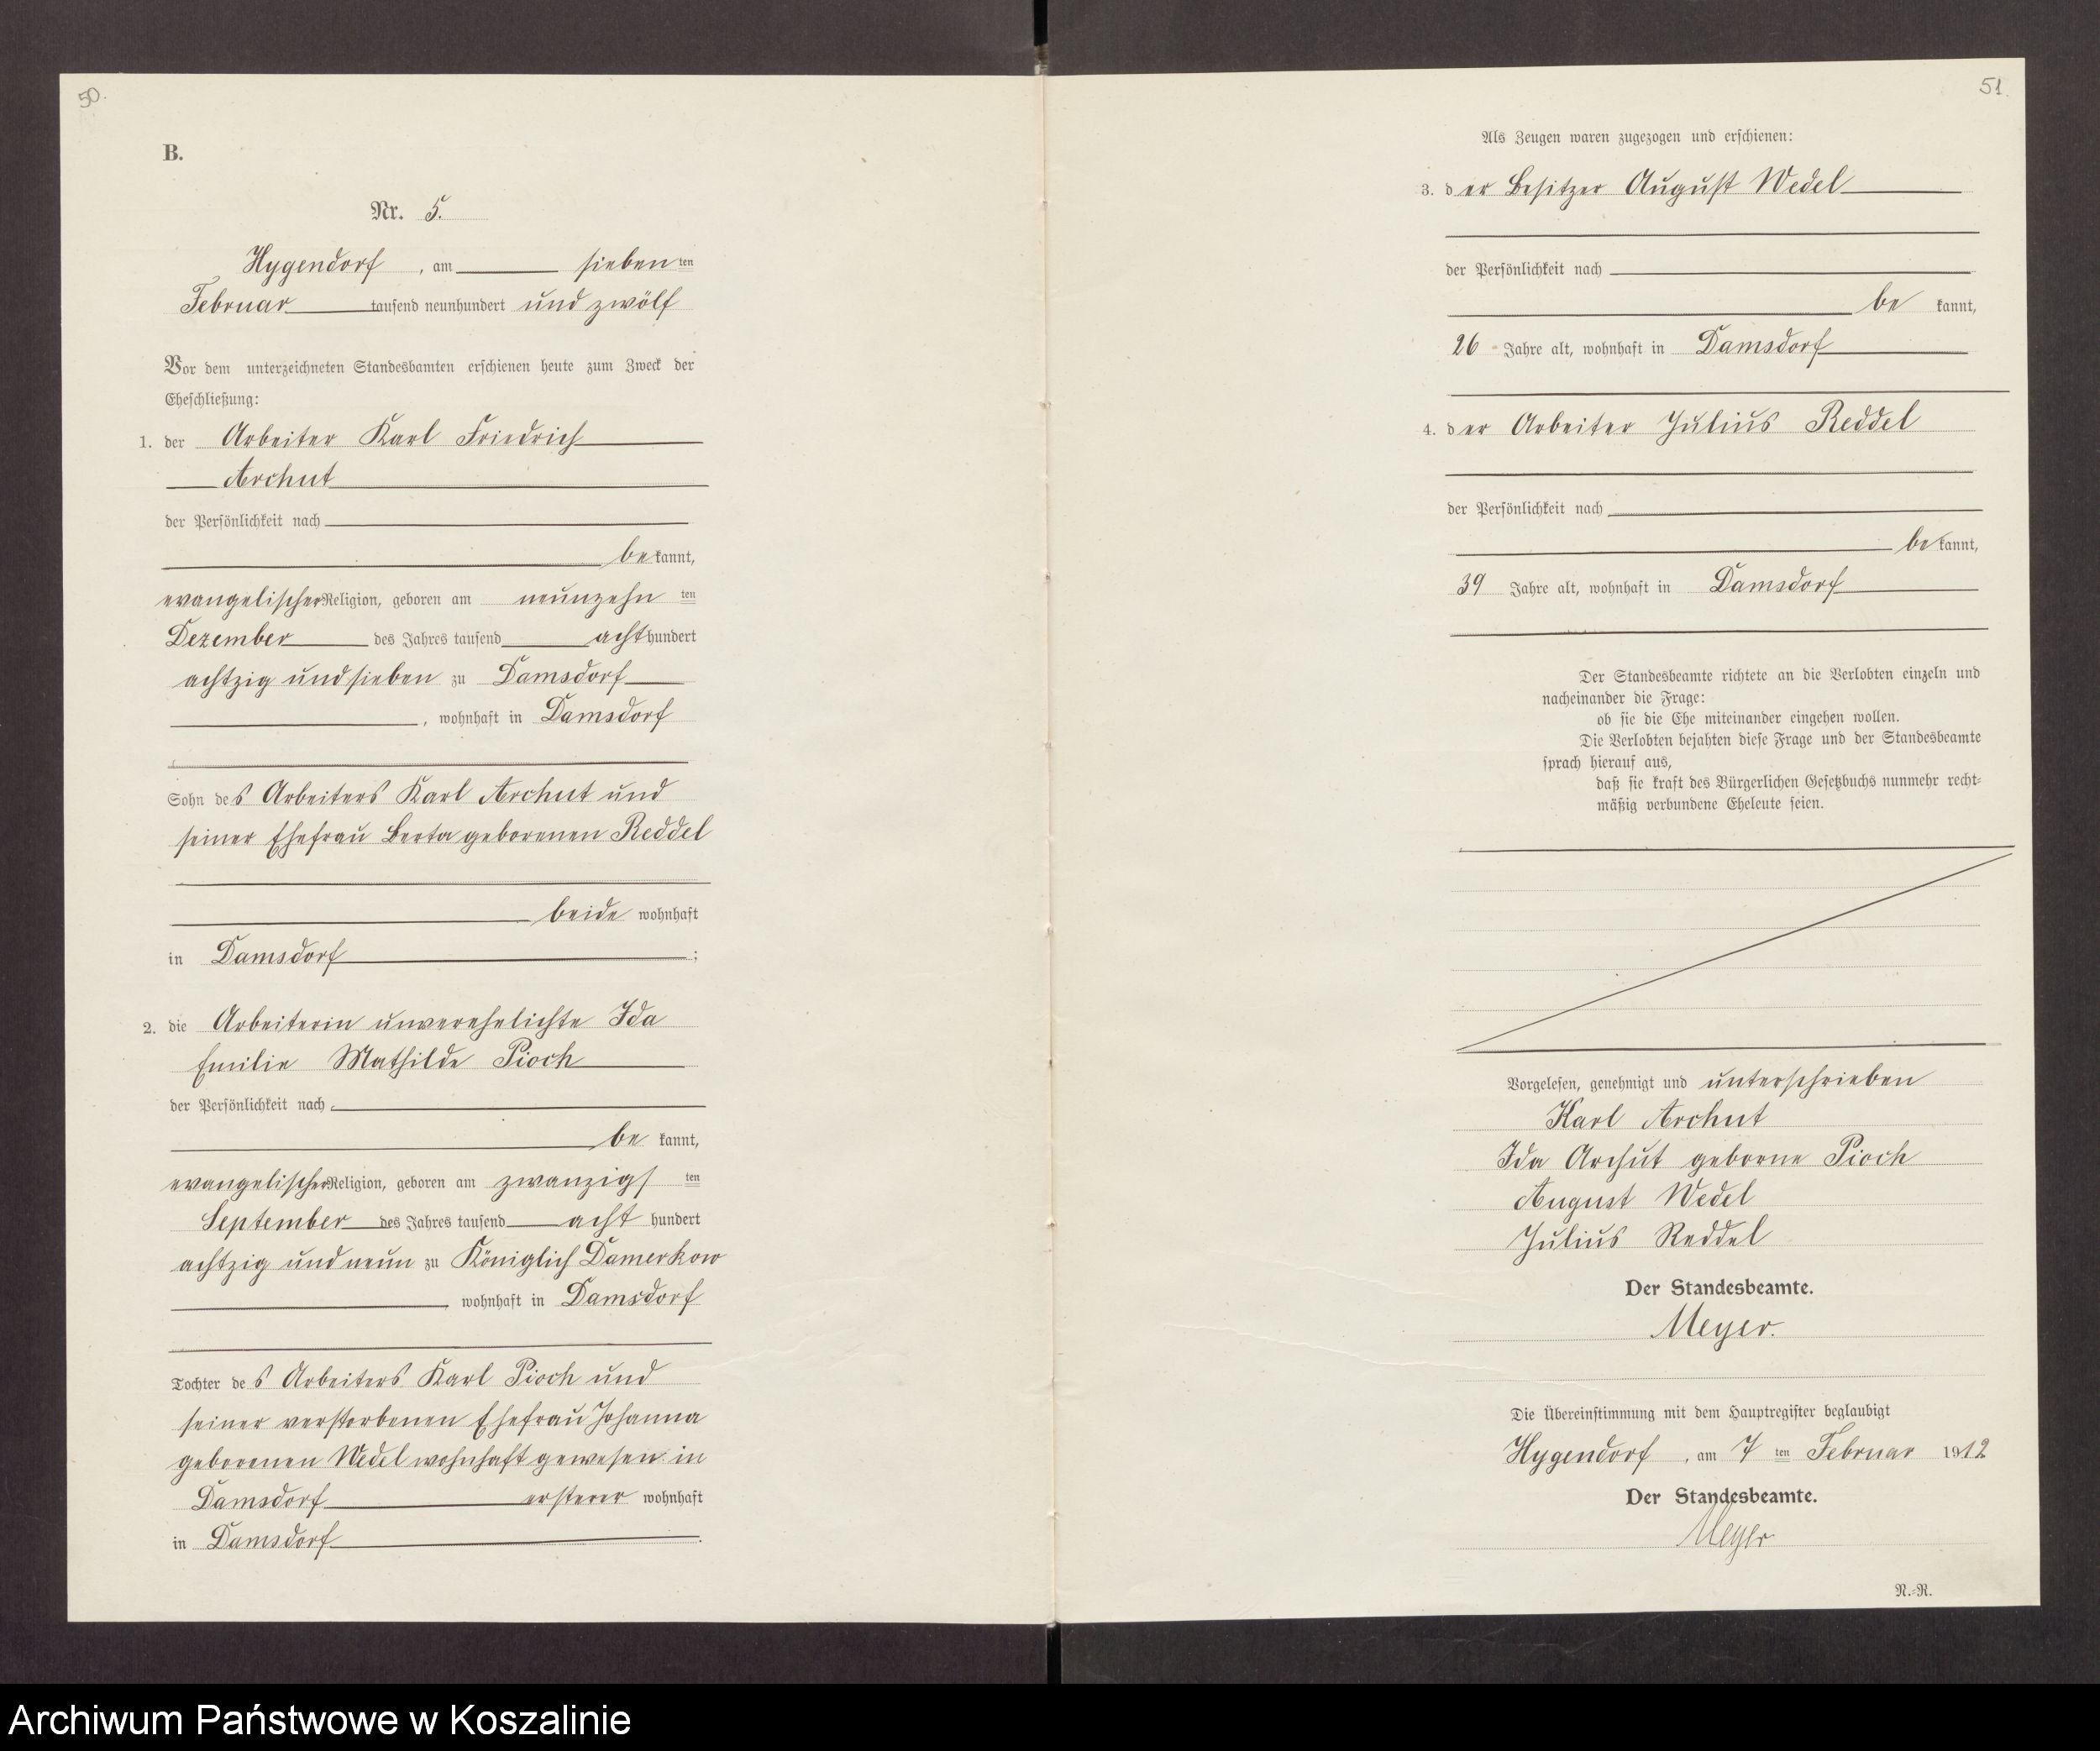 50.
B.
Nr. 5.
Hygendorf, am sieben ten
Februar tausend neunhundert und zwölf
Vor dem unterzeichneten Standesbamten erschienen heute zum Zweck der
Eheschließung:
1. der Arbeiter Karl Friedrich
Archut
der Persönlichkeit nach
be kannt,
evangelischer Religion, geboren am neunzehn ten
Dezember des Jahres tausend acht hundert
achtzig und sieben zu Damsdorf
, wohnhaft in Damsdorf
Sohn des Arbeiters Karl Archut und
seiner Ehefrau Berta geborenen Reddel
beide wohnhaft
in Damsdorf ;
2. die Arbeiterin unverehelichte Ida
Emilie Mathilde Pioch
der Persönlichkeit nach
be kannt,
evangelischer Religion, geboren am zwanzigs ten
September des Jahres tausend acht hundert
achtzig und neun zu Königlich Damerkow
, wohnhaft in Damsdorf
Tochter des Arbeiters Karl Pioch und
seiner verstorbenen Ehefrau Johanna
geborenen Wedel wohnhaft gewesen in
Damsdorf ersterer wohnhaft
in Damsdorf .
51.
Als Zeugen waren zugezogen und erschienen:
3. der Besitzer August Wedel
der Persönlichkeit nach
be kannt,
26 Jahre alt, wohnhaft in Damsdorf
4. der Arbeiter Julius Reddel
der Persönlichkeit nach
be kannt,
39 Jahre alt, wohnhaft in Damsdorf
Der Standesbeamte richtete an die Verlobten einzeln und
nacheinander die Frage:
ob sie die Ehe miteinander eingehen wollen.
Die Verlobten bejahten diese Frage und der Standesbeamte
sprach hierauf aus,
daß sie kraft des Bürgerlichen Gesetzbuchs nunmehr recht-
mäßig verbundene Eheleute seien.
Vorgelesen, genehmigt und unterschrieben
Karl Archut
Ida Archut geborne Pioch
August Wedel
Julius Reddel
Der Standesbeamte.
Meyer.
Die Übereinstimmung mit dem Hauptregister beglaubigt
Hygendorf, am 7 ten Februar 1912
Der Standesbeamte.
Meyer
N.-R.
Archiwum Państwowe w Koszalinie